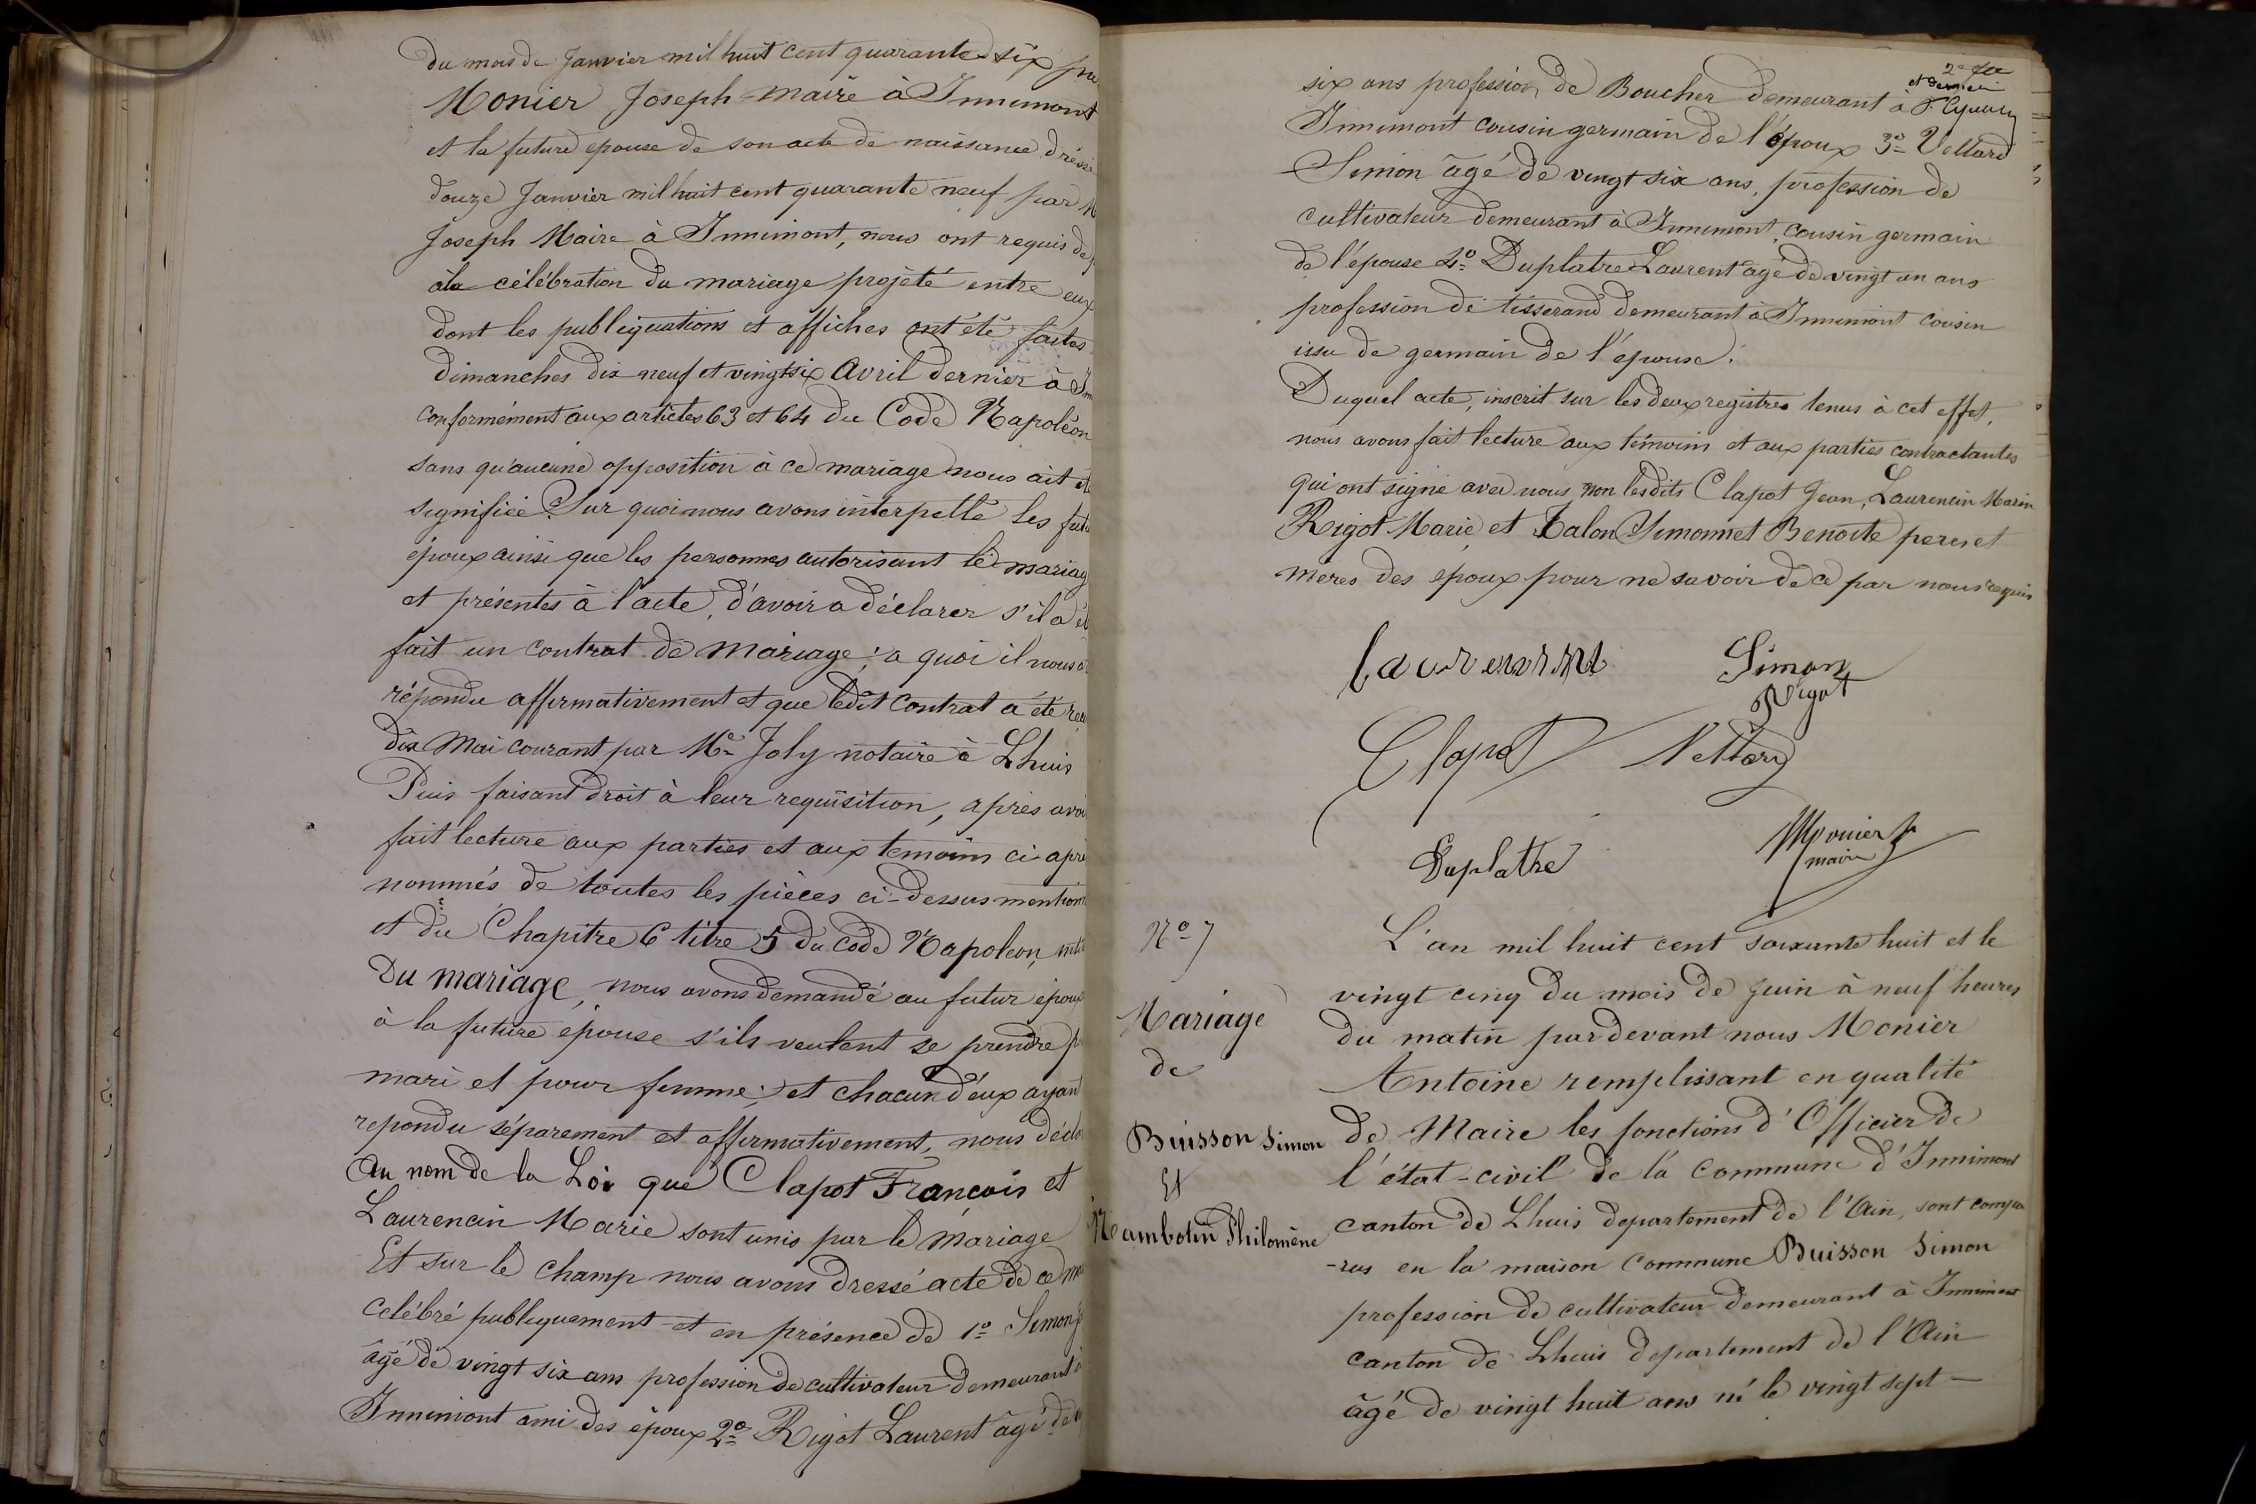 du mois de Janvier mil huit cent quarante six
Monier Joseph maire à Innimont
et la future epouse de son acte de naissance
douze Janvier mil huit cent quarante neuf par M
Joseph Maire à Innimont, nous ont requis de
à la célébration du mariage projeté entre eux
dont les publiquations et affiches ont été faites
dimanches dix neuf et vingt six Avril dernier à
conformément aux articles 63 et 64 du Code Napoléon
sans qu'aucune opposition à ce mariage nous ait
signifiée. Sur quoi nous avons interpellé les
époux ainsi que les personnes autorisant le mariag
et présentes à l'acte, d'avoir a déclarer s'il a
fait un contrat de mariage; a quoi il nous
répondu affirmativement et que ledit contrat a été
dix Mai courant par Me Joly notaire à Lhuis
Puis faisant droit à leur requisition, après avoi
fait lecture aux parties et aux temoins ci apre
nommés de toutes les pièces ci-dessus mention
et du Chapitre 6 titre 5 du code Napoléon,
Du mariage, nous avons demandé au futur époux
à la future épouse s'ils veulent se prendre p
mari et pour femme; et chacun d'eux ayan
repondu séparement et affirmativement, nous
Au nom de la Loi que Clapot François et
Laurencin Marie sont unis par le mariage
Et sur le champ nous avons dressé acte de ce
celébré publiquement et en présence de 1o Simon
âgé de vingt six ans profession de cultivateur demeurant
Innimont ami des époux 2o Rigot Laurent âgé de
2e
et dernier
six ans profession de Boucher demeurant à
Innimont cousin germain de l'époux 3o Vettard
Simon âgé de vingt six ans, profession de
cultivateur demeurant à Innimont, cousin germain
de l'épouse 4o Duplatre Laurent âgé de vingt un ans
profession de tisserand demeurant à Innimont cousin
issu de germain de l'épouse.
Duquel acte, inscrit sur les deux registres tenus à cet effet,
nous avons fait lecture aux témoins et aux parties contractantes
qui ont signé avec nous non lesdits Clapot Jean, Laurencin Marin
Rigot Marie et Talon Simonnet Benoite peres et
mères des epoux pour ne savoir de ce par nous requis
Simon
Rigot
Clapot Vettard
Duplatre
Monier
maire
No 7
Mariage
de
Buisson Simon
Et
Mambotin Philomène
L'an mil huit cent soixante huit et le
vingt cinq du mois de Juin à neuf heures
du matin par devant nous Monier
Antoine remplissant en qualité
de Maire les fonctions d'Officier de
l'état-civil de la commune d'Innimont
canton de Lhuis departement de l'Ain, sont compa
-rus en la maison commune Buisson Simon
profession de cultivateur demeurant à Innimont
canton de Lhuis departement de l'Ain
âgé de vingt huit ans né le vingt sept